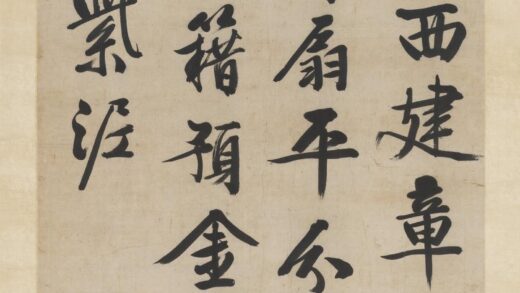 西建章
扇平分
籍預金
紫泥